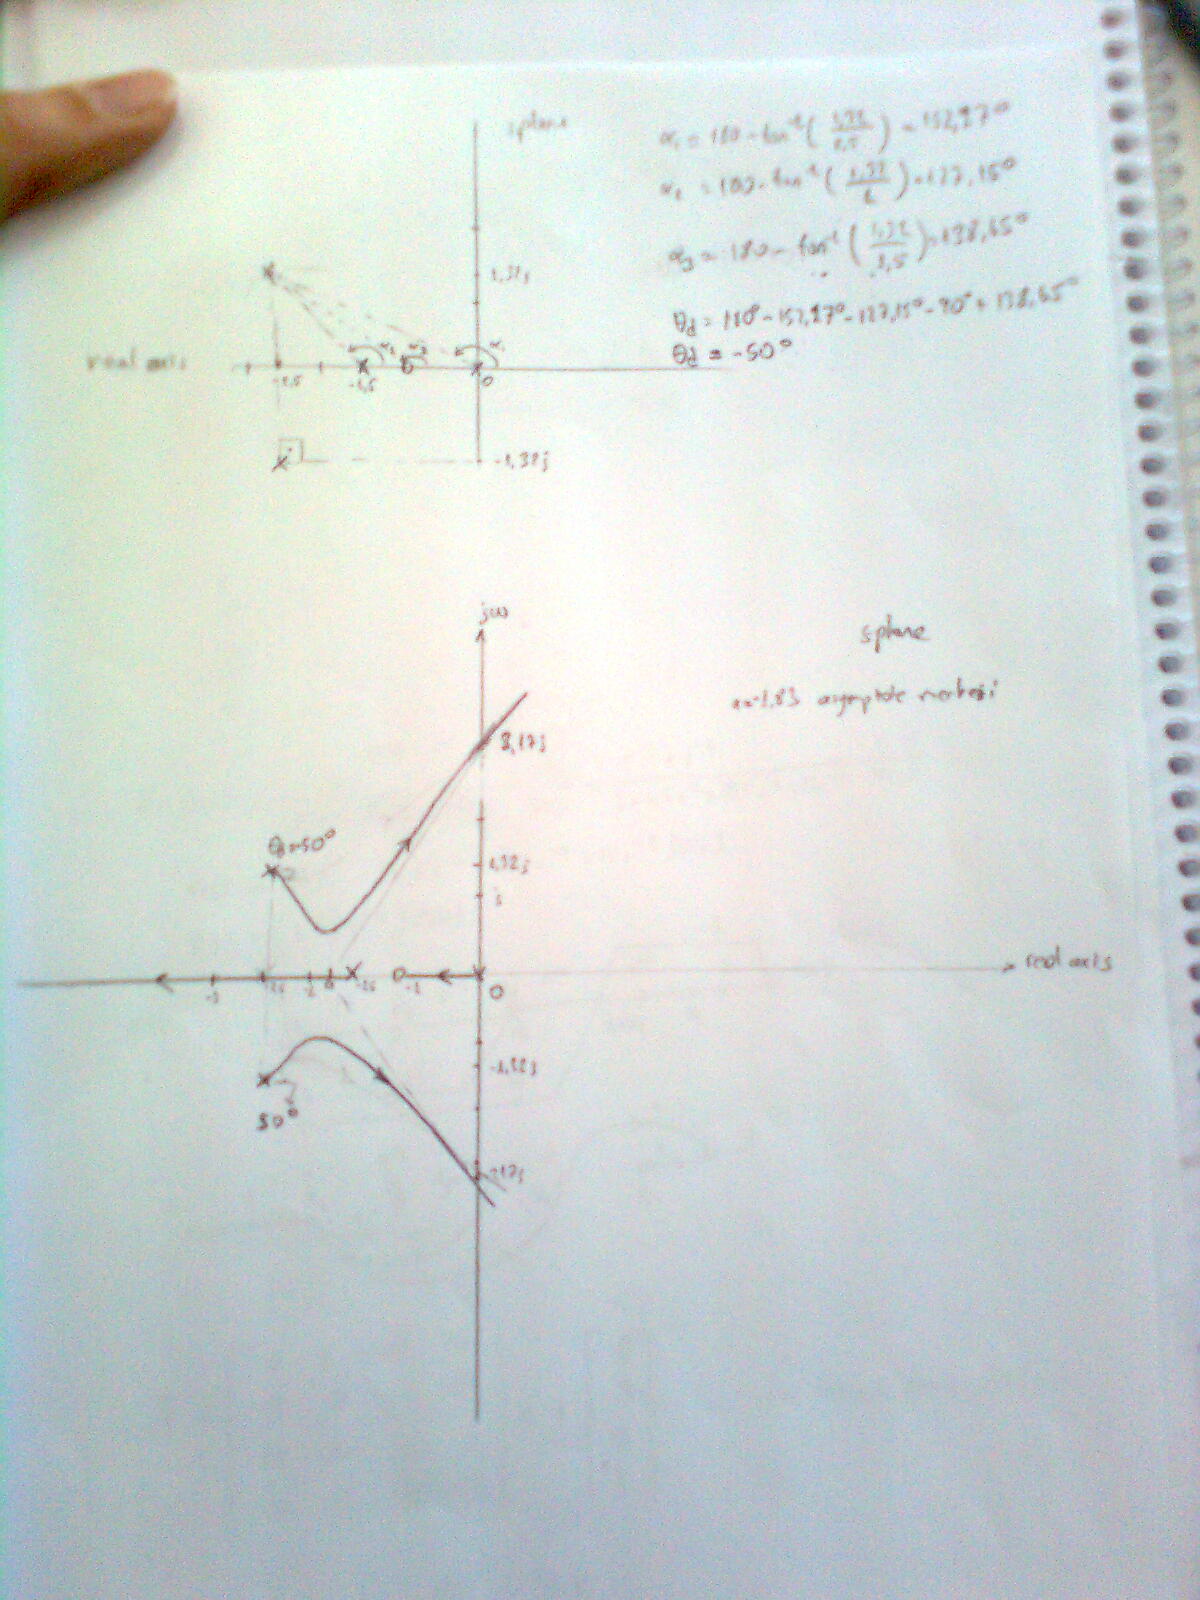 s plane
α₁ = 180 - tan⁻¹ ( 1,32 / 2,5 ) = 152,17°
α₂ = 180 - tan⁻¹ ( 1,32 / 1 ) = 127,15°
α₃ = 180 - tan⁻¹ ( 1,32 / 1,5 ) = 138,65°
θd = 180° - 152,17° - 127,15° - 90° + 138,65°
θd = -50°
1,32j
real axis
α₂ α₃ α₁
-2,5 -1,5 0
-1,32j
jω
s plane
α=-1,83 asymptote merkezi
2,17j
θd=-50°
1,32j
j
real axis
-3 -2,5 -2 -1,5 -1 0
-1,32j
50°
-2,17j